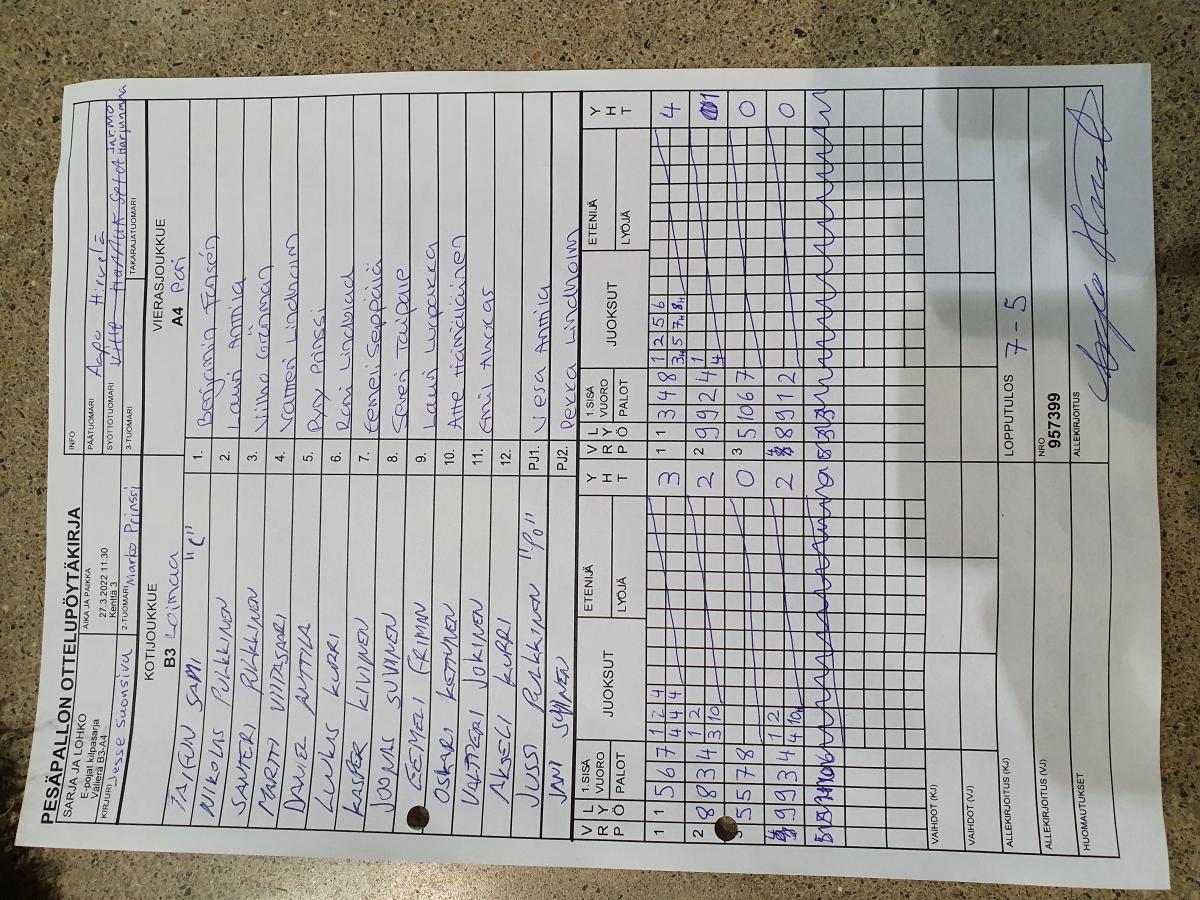 PESÄPALLON OTTELUPÖYTÄKIRJA
SARJA JA LOHKO
E-pojat kilpasarja
Välierä B3-A4
AIKA JA PAIKKA
27.3.2022 11:30
Kenttä 3
INFO
PÄÄTUOMARI Aapo Hirvelä
SYÖTTÖTUOMARI
KIRJURI Jesse Suonsivu
2-TUOMARI Marko Prinssi
3-TUOMARI
TAKARAJATUOMARI Jarmo Harjunmaa
KOTIJOUKKUE
B3 Loimaa
VIERASJOUKKUE
A4 Pori
SAMI "C"
1. Benjamin
NIKOLAS PULKKINEN
2. Lauri Anttila
SANTERI PULKKINEN
3. Vilho Grönman
MARTTI VIITASAARI
4. Valtteri Lindholm
DANIEL ANTTILA
5. Pyry Prinssi
LUKAS KURRI
6. Roni Lindblad
KASPER KIVINEN
7. Eemeli Seppälä
JOONAS SUVINEN
8. Severi Taipale
EEMELI FRIMAN
9. Lauri
OSKARI KETTUNEN
10. Atte Hämäläinen
VALTTERI JOKINEN
11. Onni
AKSELI KURRI
12.
JUSSI PULKKINEN "PO"
PJ1. Vesa Anttila
JANI
PJ2. Pekka Lindholm
V R P L Y Ö 1.SISÄ VUORO PALOT JUOKSUT ETENIJÄ LYÖJÄ Y H T
V R P L Y Ö 1.SISÄ VUORO PALOT JUOKSUT ETENIJÄ LYÖJÄ Y H T
1 1 5 6 7 1 2 4 3
4 4 4
1 1 3 4 8 1 2 5 6 4
3H 5 7H 8H
2 8 8 3 4 1 2 2
3 10
2 9 9 2 4 1 1
4
5 5 7 8 0
3 5 10 6 7 0
4 9 9 3 4 1 2 2
4 10H
4 8 9 1 2 0
VAIHDOT (KJ)
VAIHDOT (VJ)
ALLEKIRJOITUS (KJ)
LOPPUTULOS 7 - 5
ALLEKIRJOITUS (VJ)
NRO
957399
HUOMAUTUKSET
ALLEKIRJOITUS